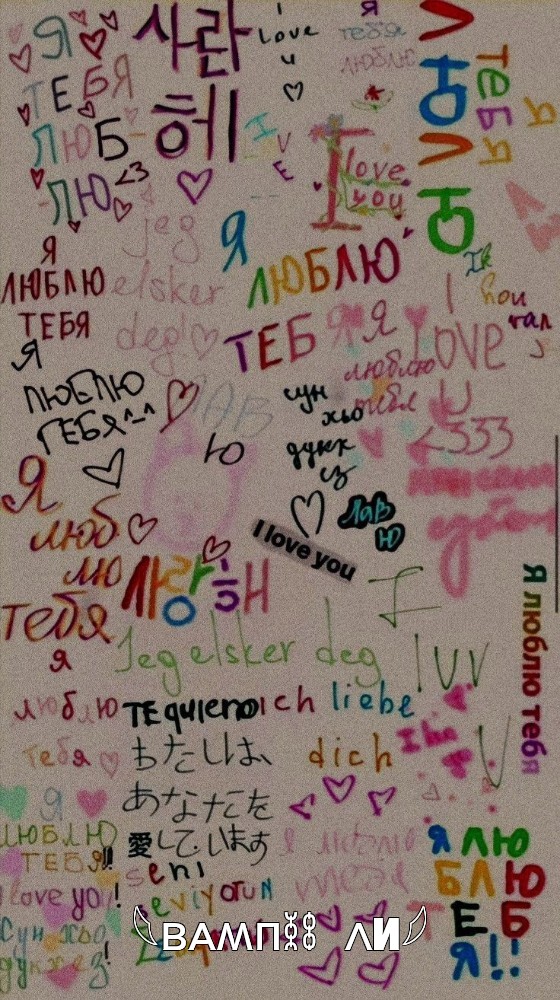 Я
ТЕБЯ
ЛЮБ
ЛЮ <3
사란
해
I
Love
u
Я
тебя
люблю
I
V
E
I love
you
Л
Ю
В
Ю
тебя
Я
Я
ЛЮБЛЮ
ТЕБЯ
jeg
elsker
deg!
Я
ЛЮБЛЮ
ТЕБЯ
Я
люблю
тебя
I
LOVE
U
<333
Я
ЛЮБЛЮ
ТЕБЯ^-^
ЛАВ
Ю
сун
хьо
дукх
ез
Лав
Ю
I love you
Я
люб
лю
тебя
사랑해
Jeg elsker deg
I
luv
V
Я люблю тебя
я
люблю
тебя
TE quiero
ich liebe
dich
わたしは、
あなたを
愛しています
Я
ЛЮБЛЮ
ТЕБЯ!!
I love you!
Сун хьо
дукх ез!
seni
seviyorum
Я люблю
Я ЛЮ
БЛЮ
ТЕБ
Я!!
ВАМП ЛИ